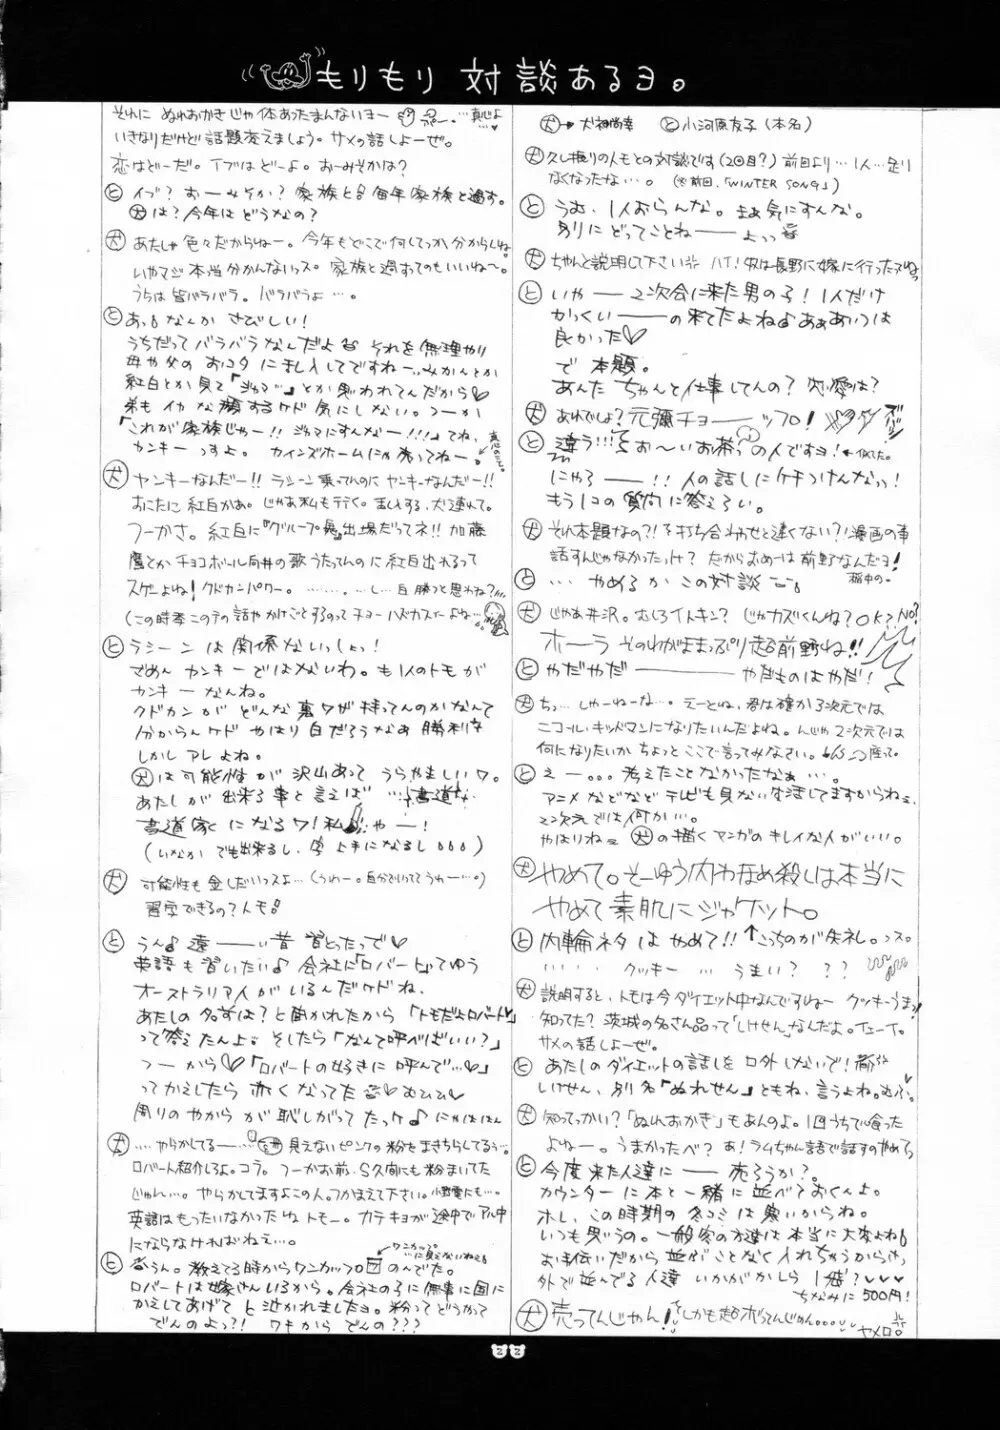 もりもり 対談あるヨ。
犬→犬神尚幸 と小河原友子(本名)
犬 久し振りの人もとの対談です(2回目?)前回より…1人…足り
なくなったな…。(※前回、「WINTER SONG」)
と うむ、1人おらんな。まぁ気にすんな。
別にどってことねーーよっっ
犬 ちゃんと説明して下さい ハイ!奴は長野に嫁に行ったスね
と いやー 2次会に来た男の子!1人だけ
かっくいーーーの来てたよねぁぁあいつは
良かった♡
で 本題。
あんた ちゃんと仕事してんの?恋愛は?
犬 あれでしょ?元彌チョーーップ!
と 違う!!!お〜いお茶っの人ですヨ!←似てた。
にゃろーー!!人の話しにケチつけんなっ!
もう1コの質問に答えろい。
犬 それ本題なの?!打ち合わせと違くない?!漫画の事
話すんじゃなかったっけ? だからおめーは前野なんだヨ!
と … やめるかこの対談 稲中の。
犬 じゃあ井沢。むしろイトキン? じゃカズくんね?OK?NO?
ホーラ そのわがままっぷり超前野ね!!
と やだやだーーーーーやだものはやだ!
犬 ちっ…しゃーねーな…。えーとね、君は確か3次元では
ニコール・キッドマンになりたいんだよね。んじゃ2次元では
何になりたいか ちょっと ここで言ってみなさい。
と えー。。。考えたことなかったなぁ…。
アニメなどなどテレビも見ない生活してますからね
2次元では何か…。
やはりね 犬の描くマンガのキレイな人がいい。
犬 やめて。そーゆう内わなめ殺しは本当に
やめて 素肌にジャケット。
と 内輪ネタはやめて!!↑こっちのが失礼。っス。
…… クッキー … うまい? ? ?
犬 説明すると、トモは今ダイエット中なんですねー クッキーうまっ!
知ってた? 茨城の名さん品って「しけせん」なんだよ。
サメの話しよーぜ。
と あたしのダイエットの話しを口外しないで!
しけせん、別名「ぬれせん」ともね、言うよね。
犬 知ってっかい?「ぬれおかき」もあんのよ。1回うちで食った
よねー。うまかったべ? あ!ラムちゃん語で話すのやめて
と 今度来た人達にーー売ろうか?。
カウンターに本と一緒に並べておくんよ。
ホレ、この時期の冬コミは寒いからね。
いつも思うの。一般客の方達は本当に大変よね
お手伝いだから並ぶことなく入れちゃうからさっ
外で並んでる人達 いかがかしら 1枚?♡♡♡
ちなみに500円!
犬 売ってんじゃん!しかも超ボってんじゃん。。。
ヤメロ
それに ぬれおかきじゃ体あったまんないヨー
いきなりだけど 話題変えましょう。サメの話しよーぜ。
恋はどーだ。イブはどーよ。おーみそかは?
と イブ? おーみそか? 家族と 毎年家族と過す。
犬は?今年はどうなの?
犬 あたしゃ色々だからねー。今年もどこで何してっか分からしね
いやマジ本当分かんないっス。家族と過すてのもいいね〜。
うちは皆バラバラ。バラバラよ…。
と あっなんか さびしい!
うちだってバラバラなんだよ それを無理やり
母や父のおコタにましょしてですねー…みかんとか
紅白とか見て「ジャマ」とか思われてんだから♡
弟もイカな顔するケド気にしない。つーか
「これが家族じゃー!!ジャマにすんなー!!!」てね、
カンキーっすよ。カインズホームにゃ売ってねー。
犬 ヤンキーなんだー!!ラシーン乗ってんのにヤンキーなんだー!!
おこたに紅白かぁ。じゃあ私も行く。犬連れて。
つーかさ。紅白に『グループ魂』出場だってネ!!加藤
鷹とかチョコボール向井の歌うたってんのに紅白出れるって
スゲーよね!クドカンパワー。……。し…白勝つと思わね?
(この時季 この手の話やかけことするのってチョーハズカスィーよね…
と ラシーンは関係ないっしょっ!
ざめんカンキーではないわ。もう1人のトモが
カンキーなんね。
クドカンがどんな裏ワザ持ってんのかなんて
分からんケド やはり白だろうなぁ勝利は
しかしアレよね。
犬は可能性が沢山あって うらやましいワ。
あたしが出来る事と言えば…書道…
書道家になるワ!私ゃー!
(いなかでも出来るし、字上手になるし。。。)
犬 可能性も金しだいっスよ…(うわー。自分でいっててうわー…。)
習字できるの?人も
と うん♪遠ーーい昔習とったで♡
英語も習いたい♪会社に「ロバート」てゆう
オーストラリア人がいるんだケドね、
あたしの名前は?と聞かれたから「トモだよロバート♡」
って答えたんよ。そしたら「なんて呼べばいい?」
つーから♡♡「ロバートの好きに呼んで…♡」
ってかえしたら赤くなってた むひひ♡
周りのやからが恥しがってたっケ♪ にゃははは
犬 …やらかしてるー…見えないピンクの粉をまきちらしてるぅ。
ロバート紹介しろよ。コラ。つーかお前、S久間にも粉まいてた
じゃん…。やらかしてますよこの人。つかまえて下さい。
英語はもったいなかったね トモー。カテキョが途中でアル中
にならなければねぇ…。
と そうん。教えてる時からワンカップのんでた。
ワンカップ。…に見えないねぇ
ロバートは嫁さんいるから。会社の子に無事に国に
かえしてあげて と泣かれましたヨ。粉ってどうやって
でんのよっ?! ワキからでんの???
22